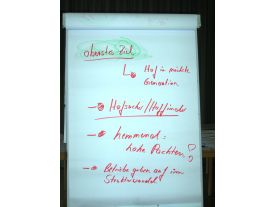 oberstes Ziel
Hof in nächste
Generation
Hofsucher/Hoffinder
hemmend:
hohe Pachten
?
Betriebe geben auf im
Strukturwandel